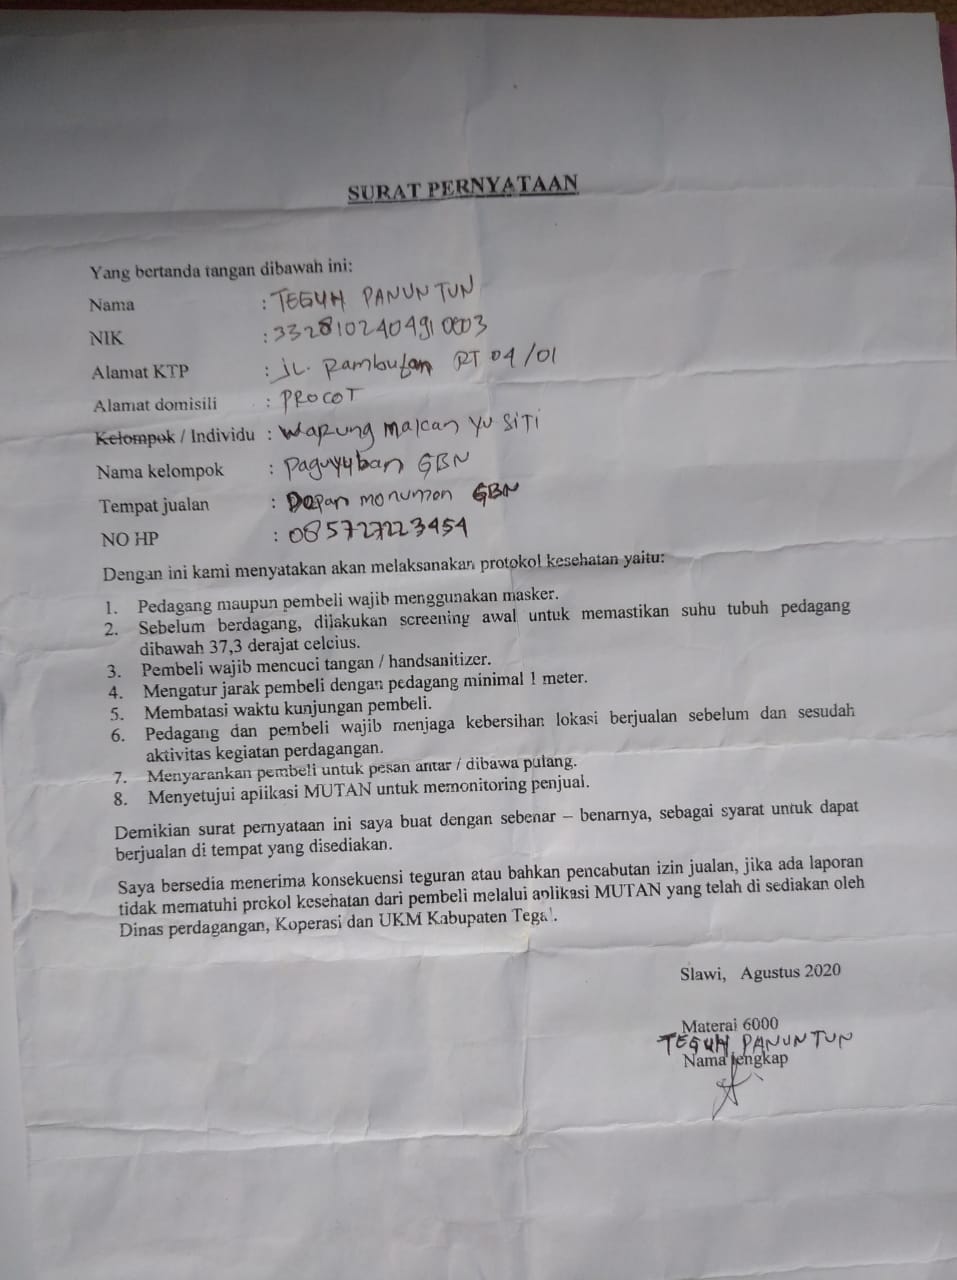 SURAT PERNYATAAN
Yang bertanda tangan dibawah ini:
Nama : TEGUH PANUNTUN
NIK : 3328102404910003
Alamat KTP : JL. Rambutan RT 04/01
Alamat domisili : PROCOT
Kelompok / Individu : Warung makan Yu SiTi
Nama kelompok : Paguyuban GBN
Tempat jualan : Depan monumen GBN
NO HP : 085727223454
Dengan ini kami menyatakan akan melaksanakan protokol kesehatan yaitu:
1. Pedagang maupun pembeli wajib menggunakan masker.
2. Sebelum berdagang, dilakukan screening awal untuk memastikan suhu tubuh pedagang
dibawah 37,3 derajat celcius.
3. Pembeli wajib mencuci tangan / handsanitizer.
4. Mengatur jarak pembeli dengan pedagang minimal 1 meter.
5. Membatasi waktu kunjungan pembeli.
6. Pedagang dan pembeli wajib menjaga kebersihan lokasi berjualan sebelum dan sesudah
aktivitas kegiatan perdagangan.
7. Menyarankan pembeli untuk pesan antar / dibawa pulang.
8. Menyetujui aplikasi MUTAN untuk memonitoring penjual.
Demikian surat pernyataan ini saya buat dengan sebenar – benarnya, sebagai syarat untuk dapat
berjualan di tempat yang disediakan.
Saya bersedia menerima konsekuensi teguran atau bahkan pencabutan izin jualan, jika ada laporan
tidak mematuhi prokol kesehatan dari pembeli melalui aplikasi MUTAN yang telah di sediakan oleh
Dinas perdagangan, Koperasi dan UKM Kabupaten Tegal.
Slawi, Agustus 2020
Materai 6000
TEGUH PANUNTUN
Nama lengkap